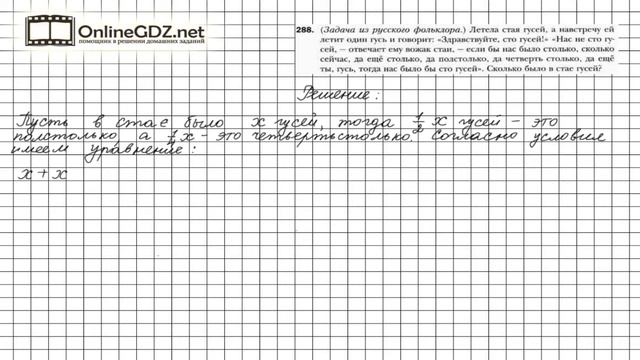 OnlineGDZ.net
помощник в решении домашних заданий
288. (Задача из русского фольклора.) Летела стая гусей, а навстречу ей
летит один гусь и говорит: «Здравствуйте, сто гусей!» «Нас не сто гу-
сей, — отвечает ему вожак стаи, — если бы нас было столько, сколько
сейчас, да ещё столько, да полстолько, да четверть столько, да ещё
ты, гусь, тогда нас было бы сто гусей». Сколько было в стае гусей?
Решение:
Пусть в стае было x гусей, тогда 1/2 x гусей – это
полстолько, а 1/4 x – это четвертьстолько. Согласно условия
имеем уравнение:
x + x